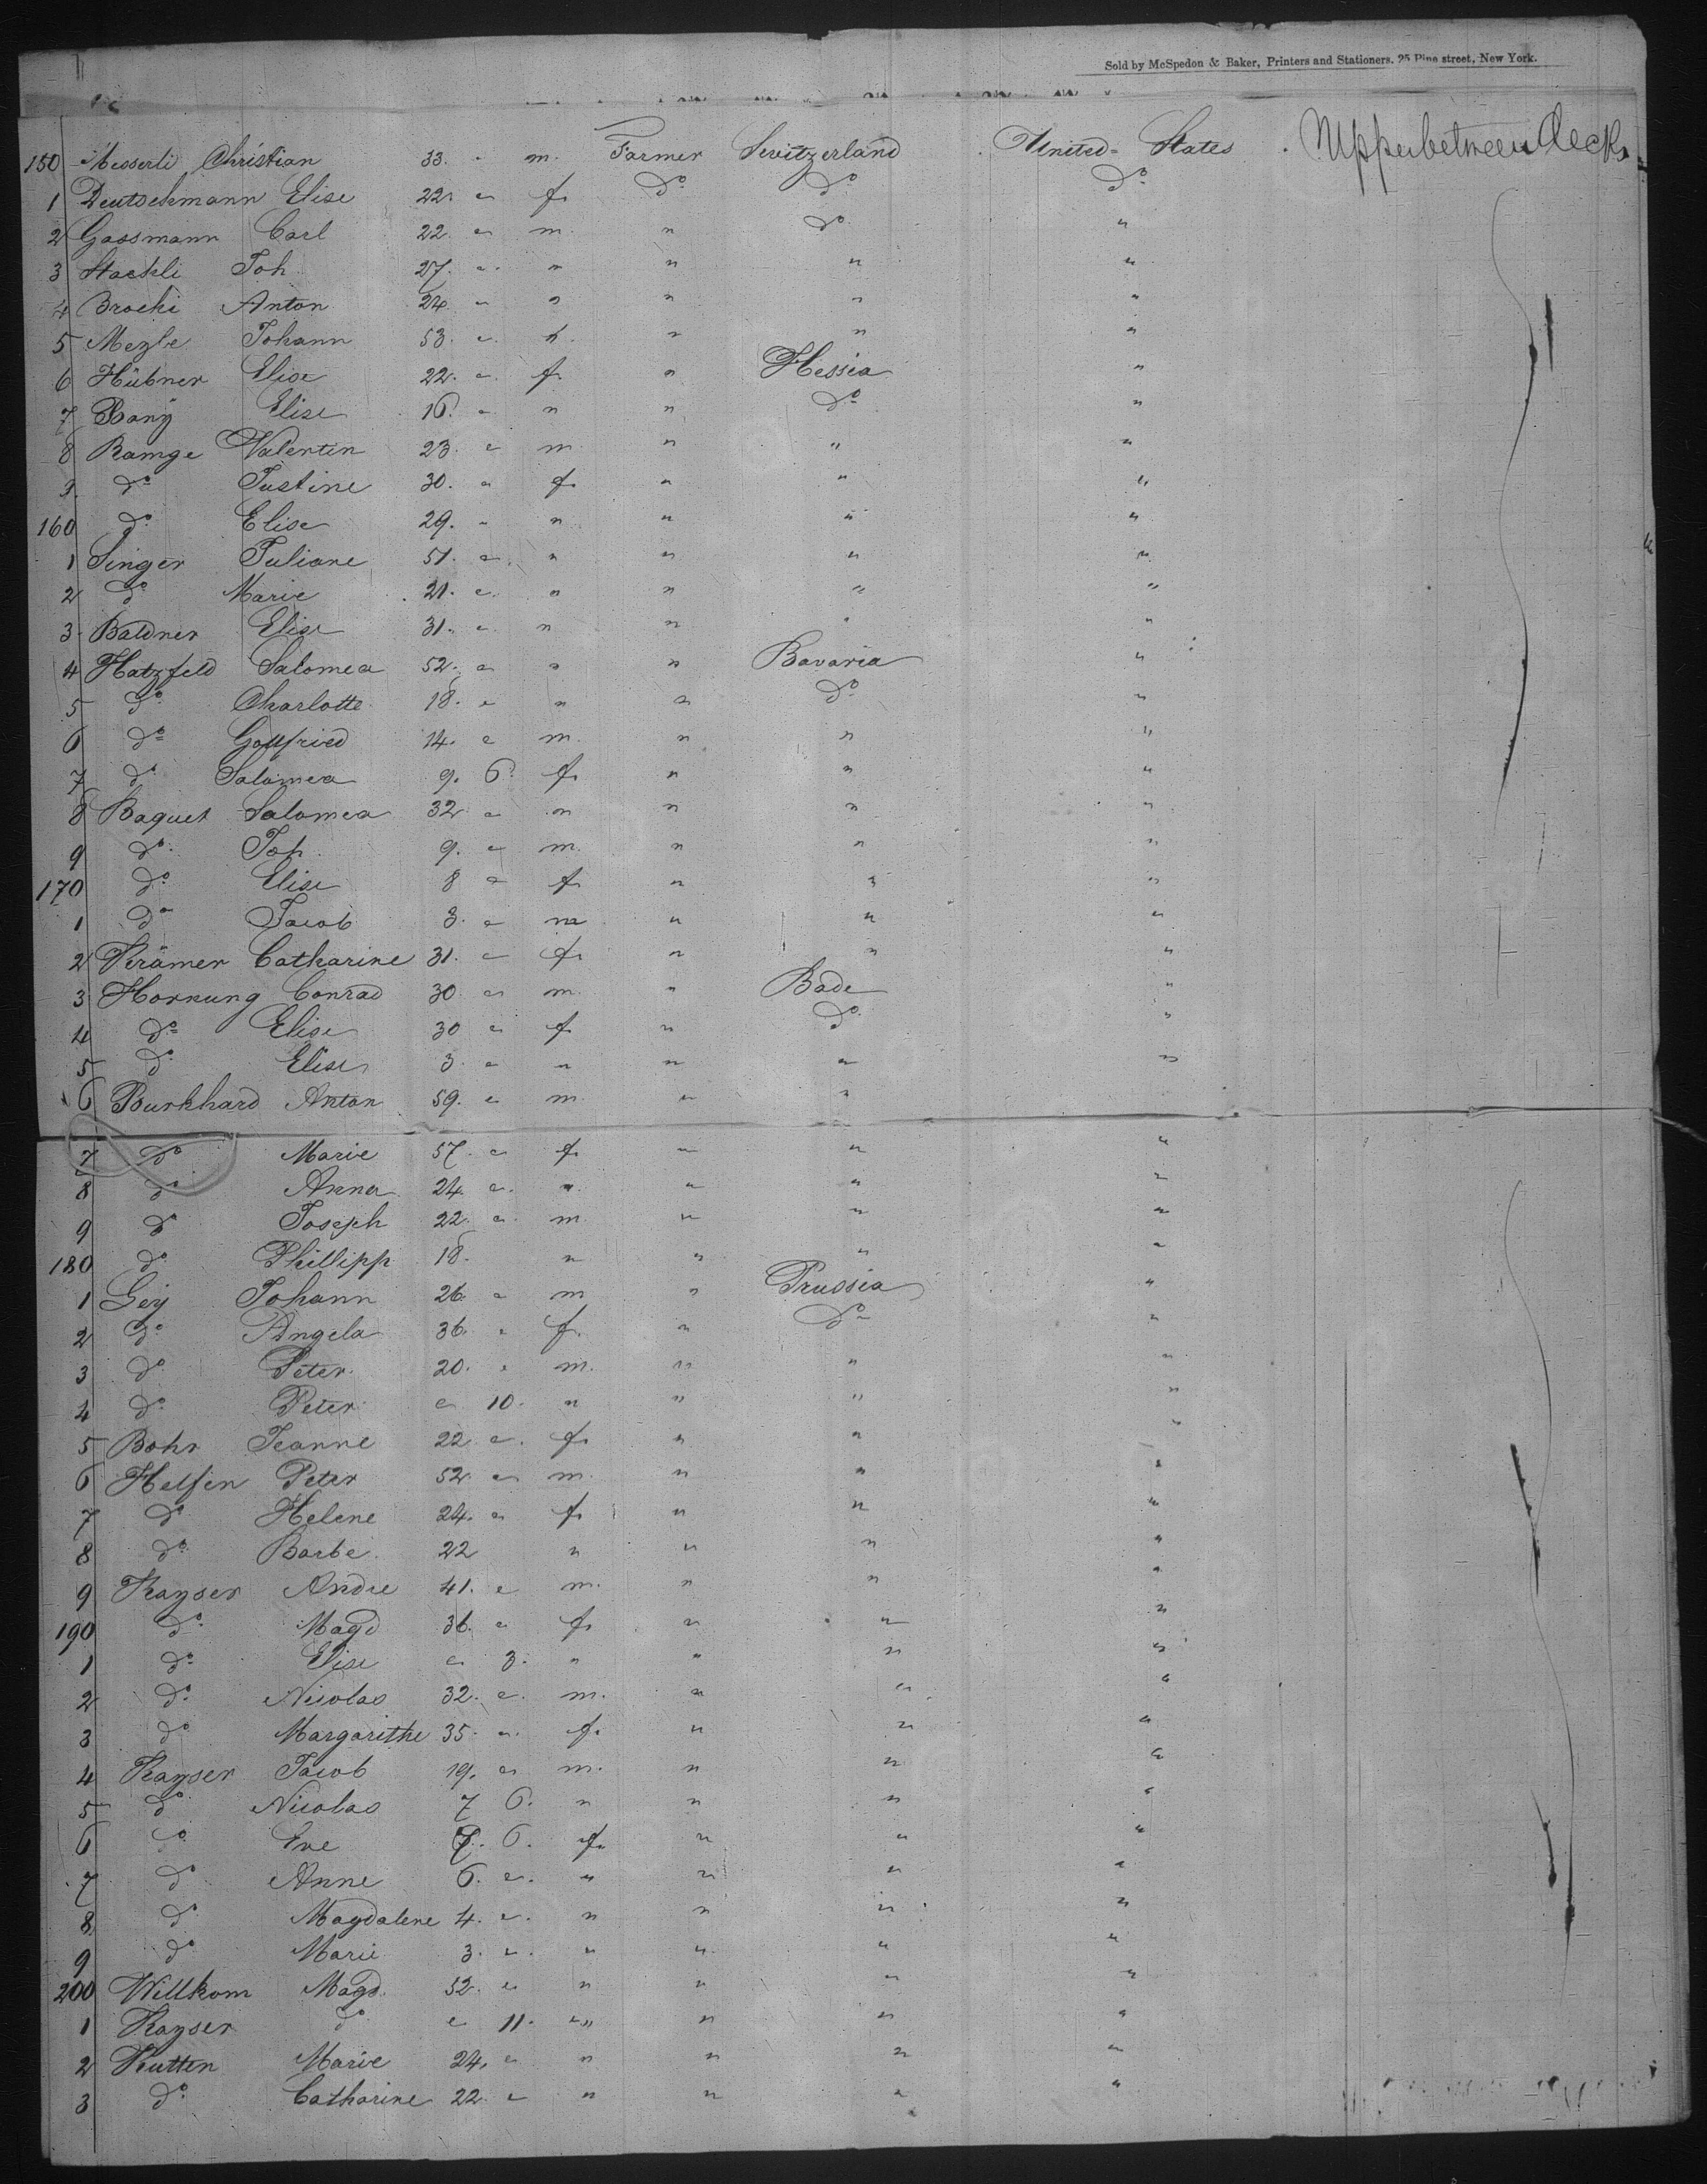 Sold by McSpedon & Baker, Printers and Stationers. 25 Pine street, New York.
150 Messerli Christian 33. " m. Farmer Switzerland United States Upper between decks
1 Deutschmann Elise 22. " f. do do do
2 Gassmann Carl 22. " m. " do "
3 Staehli Joh. 27. " " " " "
4 Brochi Anton 24 " " " " "
5 Johann 53. " " " " "
6 Hübner Elise 22. " f. " Hessia "
7 Elise 16. " " " do "
8 Ramge Valentin 23. " m " " "
9 do Justine 30. " f. " " "
160 do Elise 29. " " " " "
1 Singer Juliane 51. " " " " "
2 do Marie 21. " " " " "
3 Baldner Elise 31. " " " " "
4 Hatzfeld Salomea 52. " " " Bavaria "
5 do Charlotte 18. " " " do "
6 do Gottfried 14. " m. " " "
7 do Salomea 9. 6. f. " " "
8 Baquet Salomea 32 " " " " "
9 do Joh. 9. " m. " " "
170 do Elise 8 " f. " " "
1 do Jacob 3. " m " " "
2 Krämer Catharine 31. " f. " " "
3 Hornung Conrad 30 " m. " Bade "
4 do Elise 30 " f. " do "
5 do Elise 3. " " " " "
6 Burkhard Anton 59. " m. " "
7 do Marie 57. " f. " " "
8 do Anna 24. " " " " "
9 do Joseph 22. " m. " " "
180 do Phillipp 18. " " " "
1 Gey Johann 26. " m " Prussia "
2 do Angela 36. " f. " do "
3 do Peter 20. " m. " " "
4 do Peter " 10. " " " "
5 Bohr Jeanne 22 " f. " " "
6 Helfen Peter 52. " m. " " "
7 do Helene 24. " f. " " "
8 do Barbe 22 " " " "
9 Kayser Andre 41. " m. " " "
190 do Magd 36. " f. " " "
1 do Elise " 3. " " " "
2 do Nicolas 32. " m. " " "
3 do Margarithe 35. " f. " " "
4 Kayser Jacob 19. " m. " " "
5 do Nicolas 7 6. " " " "
6 do Eve 7. 6. f. " " "
7 do Anne 6. " " " " "
8 do Magdalene 4. " " " " "
9 do Marie 3. " " " " "
200 Willkom Magd. 52. " " " " "
1 Kayser do " 11. " " " "
2 Kutten Marie 24. " " " " "
3 do Catharine 22. " " " " "